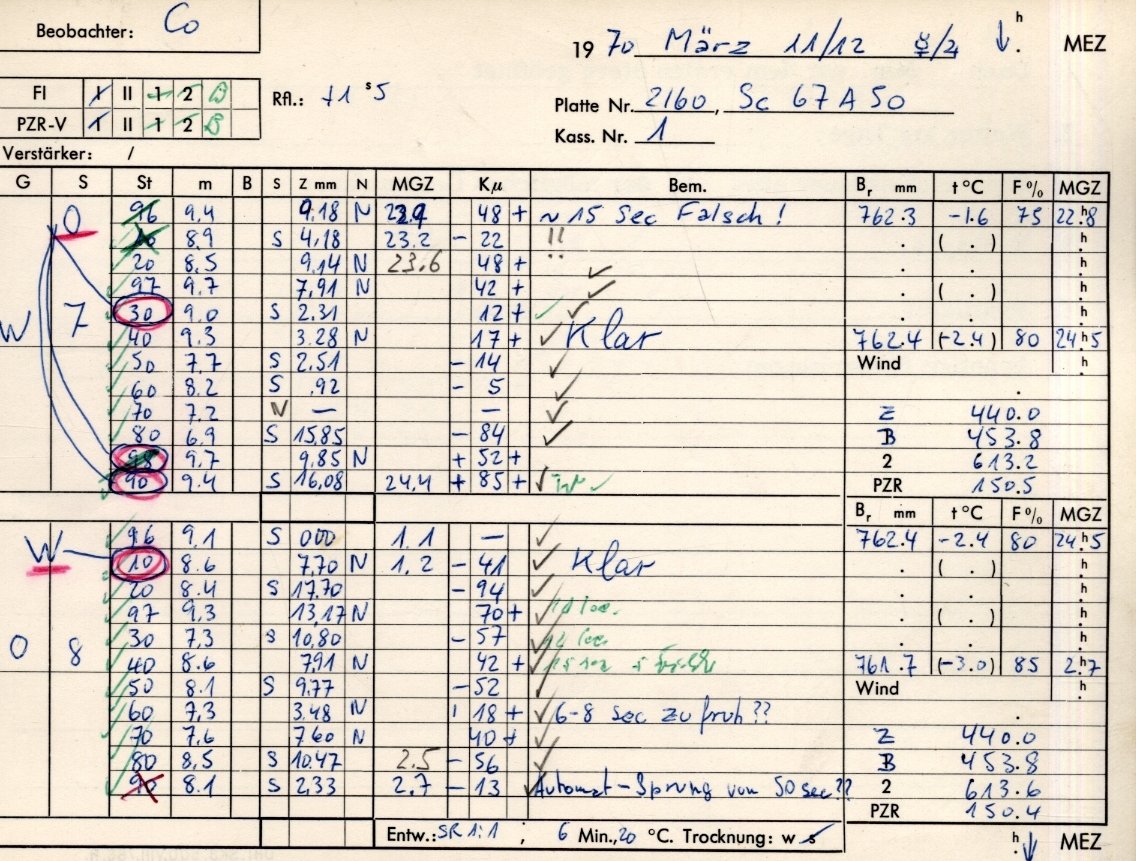 Beobachter: Co
19 70 März 11/12 ☿/♃ ↓ h. MEZ
FI I II 1 2 B Rfl.: +1 s 5
Platte Nr. 2160, Sc 67 A 50
PZR-V I II 1 2 B
Kass. Nr. 1
Verstärker: /
G S St m B S Z mm N MGZ Kμ Bem. Br mm t °C F % MGZ
O 96 9.4 9.18 N 48 + ~ 15 sec Falsch! 762.3 -1.6 75 22.h8
8.9 S 4.18 23.2 - 22 !! . ( . ) h
20 8.5 9.14 N 23.6 48 + . . h
97 9.7 7.91 N 42 + ✓ . ( . ) h
30 9.0 S 2.31 12 + ✓ . . h
W 7 40 9.3 3.28 N 17 + ✓ Klar 762.4 (-2.4) 80 24.h5
50 7.7 S 2.51 - 14 ✓ Wind h
60 8.2 S .92 - 5 ✓ .
70 7.2 — — ✓ Z 440.0
80 6.9 S 15.85 - 84 ✓ B 453.8
98 9.7 9.85 N + 52 + 2 613.2
90 9.4 S 16.08 24.4 + 85 + ✓ PZR 150.5
Br mm t °C F % MGZ
W 96 9.1 S 000 1.1 — ✓ 762.4 -2.4 80 24.h5
10 8.6 7.70 N 1.2 - 41 ✓ Klar . ( . ) h
20 8.4 S 17.70 - 94 ✓ . . h
97 9.3 13.17 N 70 + ✓ . ( . ) h
30 7.3 S 10.80 - 57 ✓ . . h
O 8 40 8.6 7.91 N 42 + ✓ 761.7 (-3.0) 85 2.h7
50 8.1 S 9.77 - 52 ✓ Wind h
60 7.3 3.48 N 18 + ✓ 6-8 sec zu früh ?? .
70 7.6 7.60 N 40 + ✓ Z 440.0
80 8.5 S 10.47 2.5 - 56 ✓ B 453.8
90 8.1 S 2.33 2.7 - 13 ✓ Automat-Sprung vom 50 sec ?? 2 613.6
PZR 150.4
Entw.: SR 1:1 ; 6 Min., 20 °C. Trocknung: w s h. ↓ MEZ